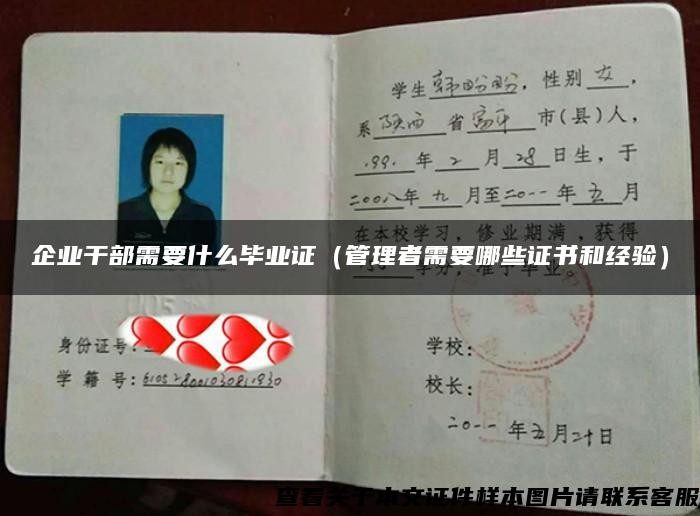 学生韩盼盼，性别女，
系陕西省富平市(县)人，
1991年2月28日生，于
二00八年九月至二0一一年五月
在本校学习，修业期满，获得
学分，准予毕业。
企业干部需要什么毕业证（管理者需要哪些证书和经验）
身份证号：
学籍号：
学校：
校长：
二0一一年五月二十日
查看关于本文证件样本图片请联系客服